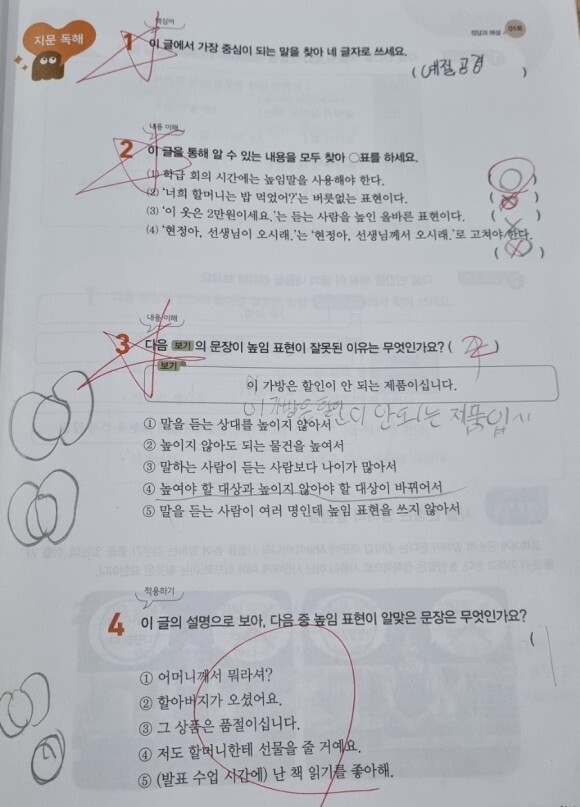 지문 독해
정답과 해설 01쪽
핵심어
1 이 글에서 가장 중심이 되는 말을 찾아 네 글자로 쓰세요.
( 예절공경 )
내용 이해
2 이 글을 통해 알 수 있는 내용을 모두 찾아 ○표를 하세요.
(1) 학급 회의 시간에는 높임말을 사용해야 한다. ( ○ )
(2) '너희 할머니는 밥 먹었어?'는 버릇없는 표현이다. ( )
(3) '이 옷은 2만원이세요.'는 듣는 사람을 높인 올바른 표현이다. ( )
(4) '현정아, 선생님이 오시래.'는 '현정아, 선생님께서 오시래.'로 고쳐야 한다.
( )
내용 이해
3 다음 보기 의 문장이 높임 표현이 잘못된 이유는 무엇인가요? ( )
보기
이 가방은 할인이 안 되는 제품이십니다.
이 가방은 할인이 안되는 제품입
① 말을 듣는 상대를 높이지 않아서
② 높이지 않아도 되는 물건을 높여서
③ 말하는 사람이 듣는 사람보다 나이가 많아서
④ 높여야 할 대상과 높이지 않아야 할 대상이 바뀌어서
⑤ 말을 듣는 사람이 여러 명인데 높임 표현을 쓰지 않아서
적용하기
4 이 글의 설명으로 보아, 다음 중 높임 표현이 알맞은 문장은 무엇인가요?
(
① 어머니께서 뭐라셔?
② 할아버지가 오셨어요.
③ 그 상품은 품절이십니다.
④ 저도 할머니한테 선물을 줄 거예요.
⑤ (발표 수업 시간에) 난 책 읽기를 좋아해.